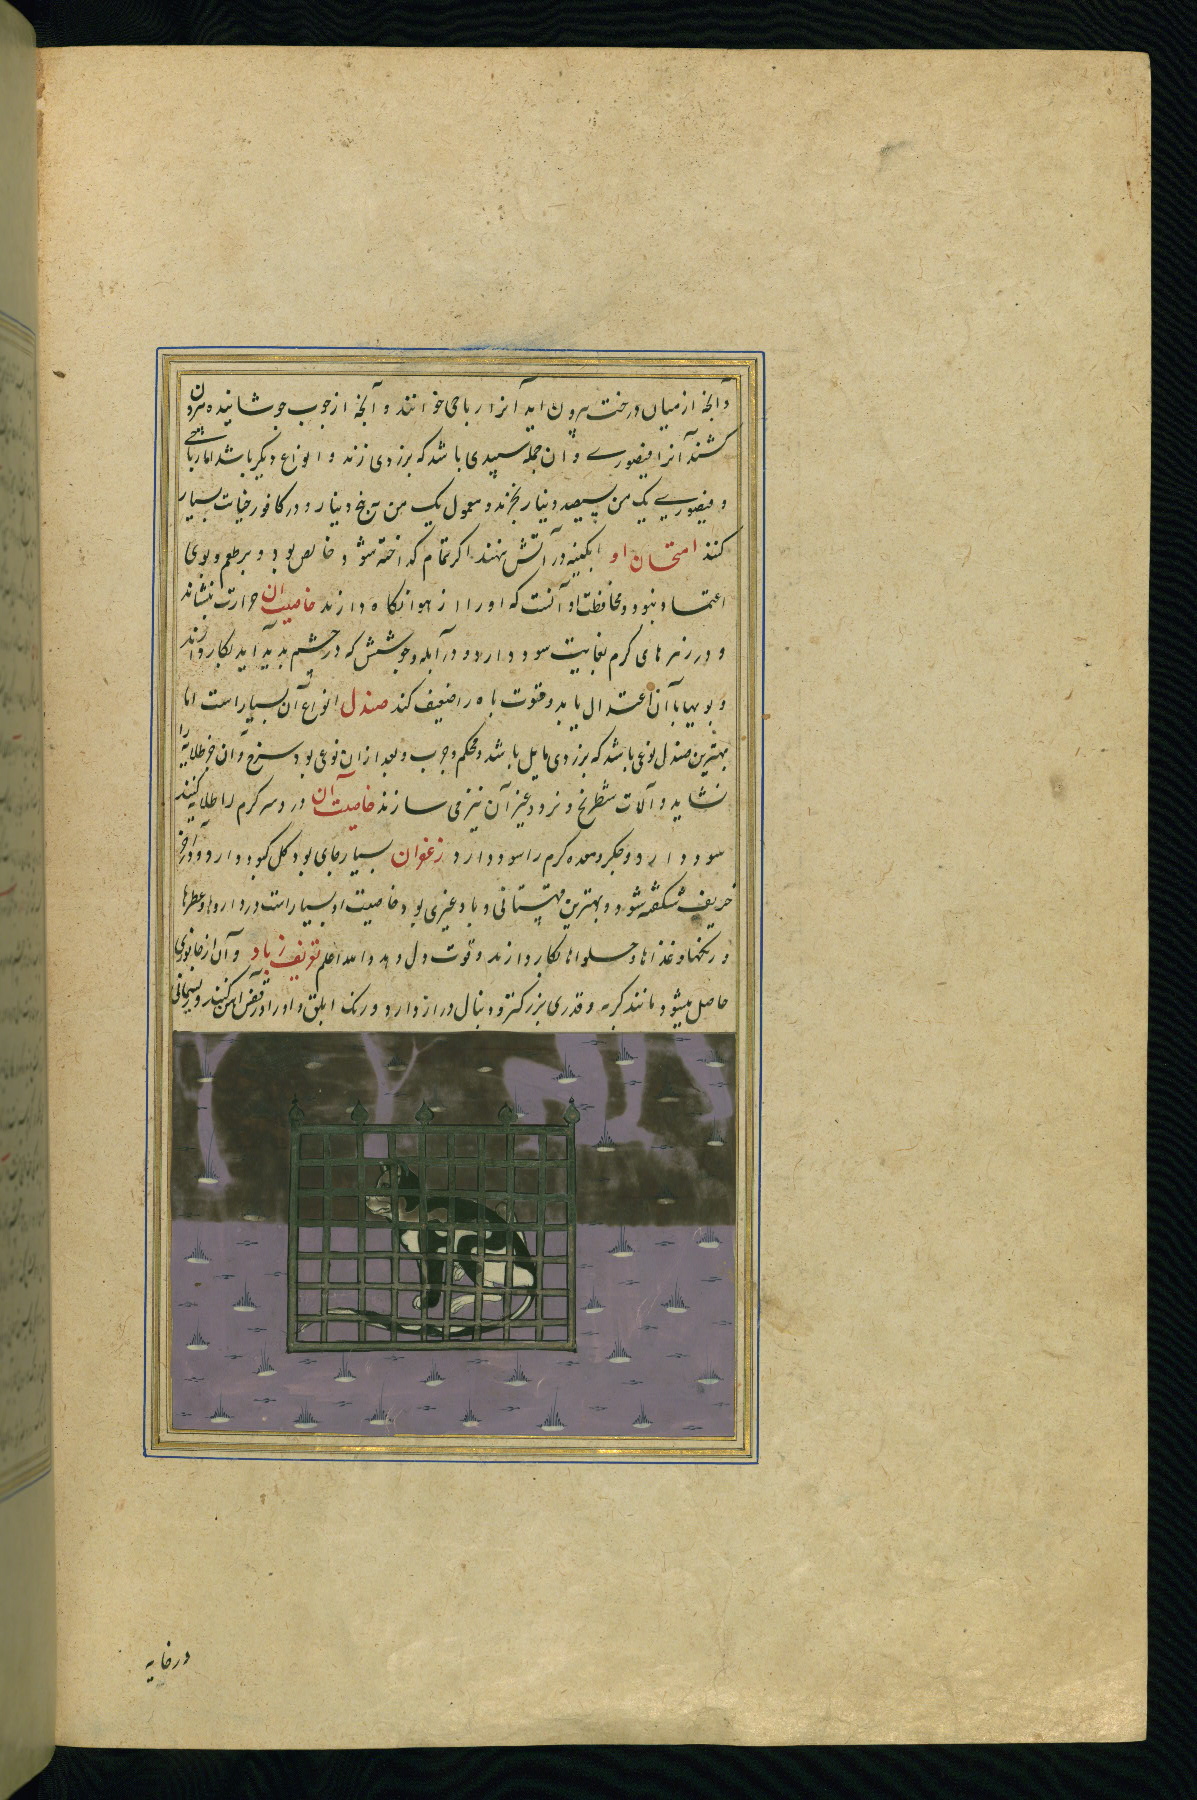 و آنچه از میان درخت بیرون اید آنرا رباحی خوانند و آنچه از چوب جوشانیده بیرون
کشند آنرا فیصوری و ان جمله سپیدی باشد که بزردی زند و انواع دیکر باشد اما رباحی
و فیصوری یک من سیصد دینار بخرند و معمول یک من پنج دینار و در کافور خیانت بسیار
کنند امتحان او ابکینه در آتش نهند اکر تمام کداخته شود خالص بود و بر طعم و بوی
اعتماد نبود و محافظت او آنست که او را از هوا نکاه دارند خاصیت ان حرارت بنشاند
و در زهرهای کرم بغایت سود دارد و در آبله و جوشش که در چشم پدید آید بکار دارند
و بویها بآن اعتدال یابد و قوت باه را ضعیف کند صندل انواع آن بسیار است اما
بهترین صندل نوعی باشد که بزردی مایل باشد و محکم و چرب و بعد از ان نوعی بود سرخ و ان جز طلایه را
نشاید و آلات شطرنج و نرد و غیر آن نیز می سازند خاصیت آن درد سر کرم را طلایه کنند
سود دارد و جکر و معده کرم را سود دارد زعفران بسیار جای بود کل کبود دارد و در آخر
خریف شکفته شود و بهترین قهستانی و بادغیزی بود خاصیت او بسیار است در داروها و عطرها
و رنکها و غذاها و حلواها بکار دارند و قوت دل دهد والله اعلم تعریف زباد و آن از جانوری
حاصل میشود مانند کربه و قدری بزرکتر و دنبال دراز دارد و رنک ابلق و او را در قفص اهن کنند و
در خایه